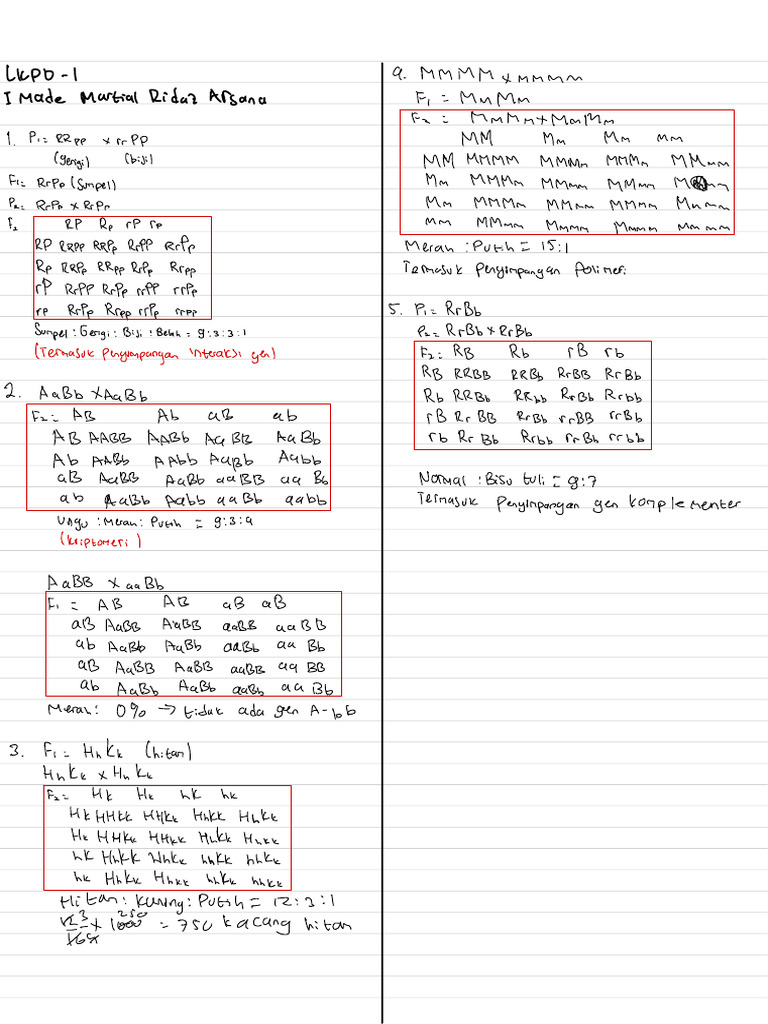 LKPD-1
I Made Martial Ridaz Arsana
1. P1 = RRpp x rrPP
(gerigi) (biji)
F1 = RrPp (Sumpel)
P2 = RrPp x RrPp
F2 RP Rp rP rp
RP RRPP RRPp RrPP RrPp
Rp RRPp RRpp RrPp Rrpp
rP RrPP RrPp rrPP rrPp
rp RrPp Rrpp rrPp rrpp
Sumpel : Gerigi : Biji : Belah = 9:3:3:1
(Termasuk Penyimpangan interaksi gen)
2. AaBb x AaBb
F2 = AB Ab aB ab
AB AABB AABb AaBB AaBb
Ab AABb AAbb AaBb Aabb
aB AaBB AaBb aaBB aaBb
ab AaBb Aabb aaBb aabb
Ungu : Merah : Putih = 9:3:4
(Kriptomeri)
AaBB x aaBb
F1 = AB AB aB aB
aB AaBB AaBB aaBB aaBB
ab AaBb AaBb aaBb aaBb
aB AaBB AaBB aaBB aaBB
ab AaBb AaBb aaBb aaBb
Merah : 0% → tidak ada gen A-bb
3. F1 = HhKk (hitam)
HhKk x HhKk
F2 = HK Hk hK hk
HK HHKK HHKk HhKK HhKk
Hk HHKk HHKk HhKk Hhkk
hK HhKK HhKk hhKK hhKk
hk HhKk Hhkk hhKk hhkk
Hitam : Kuning : Putih = 12:3:1
12 3 / 16 4 x 1000 250 = 750 kacang hitam
4. MMMM x mmmm
F1 = MmMm
F2 = MmMm x MmMm
MM Mm Mm mm
MM MMMM MMMm MMMm MMmm
Mm MMMm MMmm MMmm Mmmm
Mm MMMm MMmm MMmm Mmmm
mm MMmm Mmmm Mmmm mmmm
Merah : Putih = 15:1
Termasuk Penyimpangan Polimeri
5. P1 = RrBb
P2 = RrBb x RrBb
F2 = RB Rb rB rb
RB RRBB RRBb RrBB RrBb
Rb RRBb RRbb RrBb Rrbb
rB RrBB RrBb rrBB rrBb
rb RrBb Rrbb rrBb rrbb
Normal : Bisu tuli = 9:7
Termasuk Penyimpangan gen komplementer